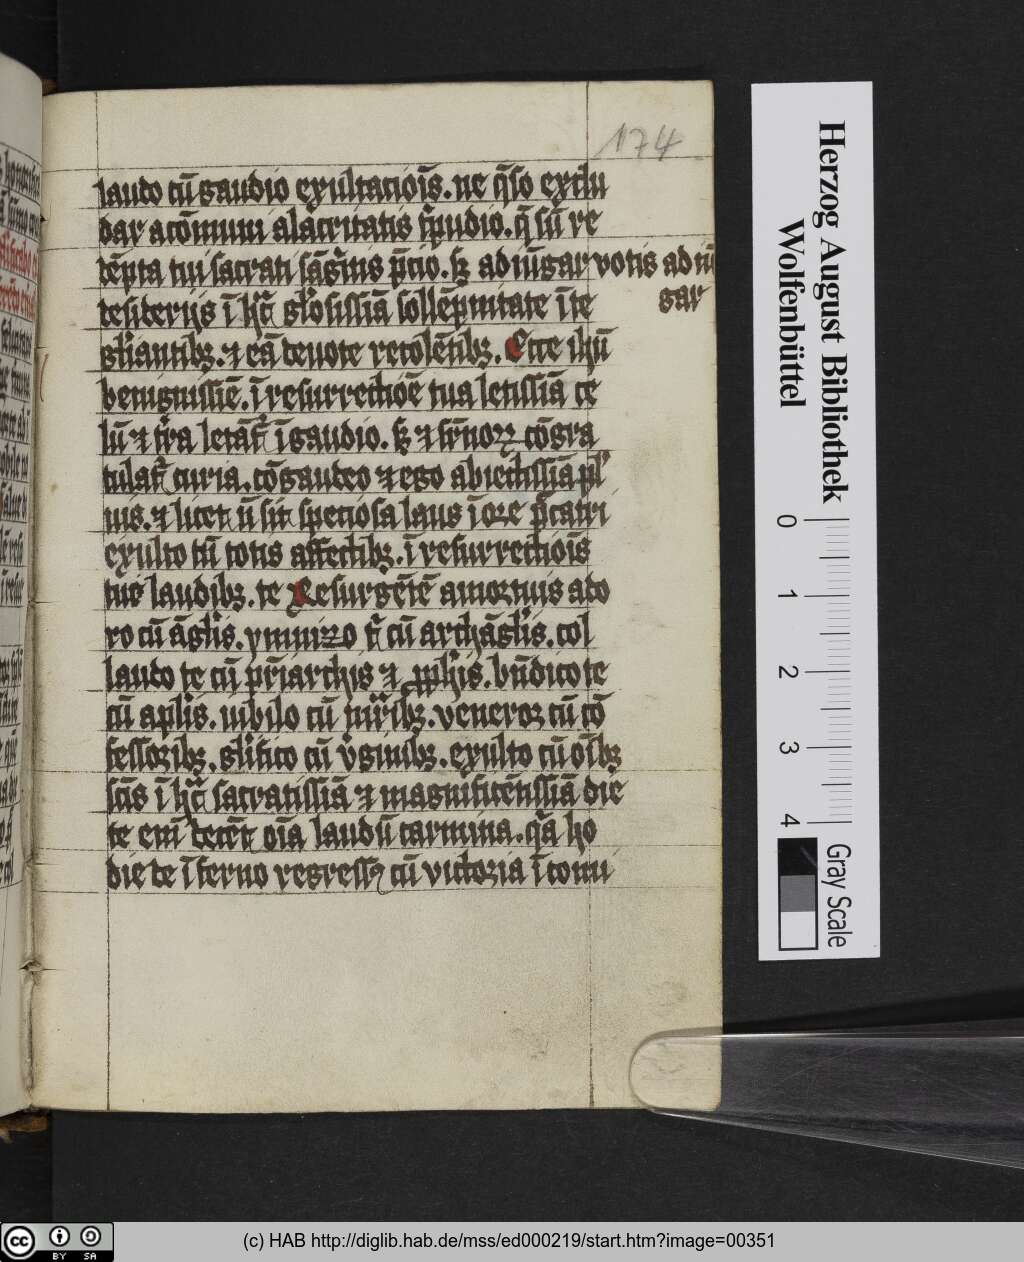 174
laudo cū gaudio exultaciōis. ne q̄so exclu
dar a cōmuni alacritatis t̄pudio. q̄ sū re
dēpta tui sacrati sāgīnis p̄cio. sꝫ adiūgar votis ad iū
gar
desiderijs ī hac̄ gl'osissīa sollēpnitate ī te
gl'iantibꝫ. et eā deuote recolētibꝫ. Ecce ihū
benignissīe. ī resurrectiōe tua letissīa ce
lū et tr̄a letāt᷑ ī gaudio. sꝫ et īfernoꝝ cōgra
tulat᷑ curia. cōgaudeo et ego abiectissīa pl'
uis. et licet nō sit speciosa laus ī ore p̄catri
exulto cū totis affectibꝫ. ī resurrectiōis
tue laudibꝫ. te Resurgētē a mortuis ado
ro cū āgl'is. ymnizo t̄ cū archāgl'is. col
laudo te cū pr̄iarchis et ꝓph'is. bn̄dico te
cū apl'is. iubilo cū mr̄ibꝫ. veneror cū cō
fessoribꝫ. gl'ifico cū v̓ginibꝫ. exulto cū oībꝫ
sc̄is ī hac̄ sacratissīa et magnificētissīa die
te enī decēt oīa laudū carmina. q̄a ho
die de īferno regressꝰ cū victoria ī tomi
Herzog August Bibliothek
Wolfenbüttel
0 1 2 3 4
Gray Scale
cc BY SA
(c) HAB http://diglib.hab.de/mss/ed000219/start.htm?image=00351